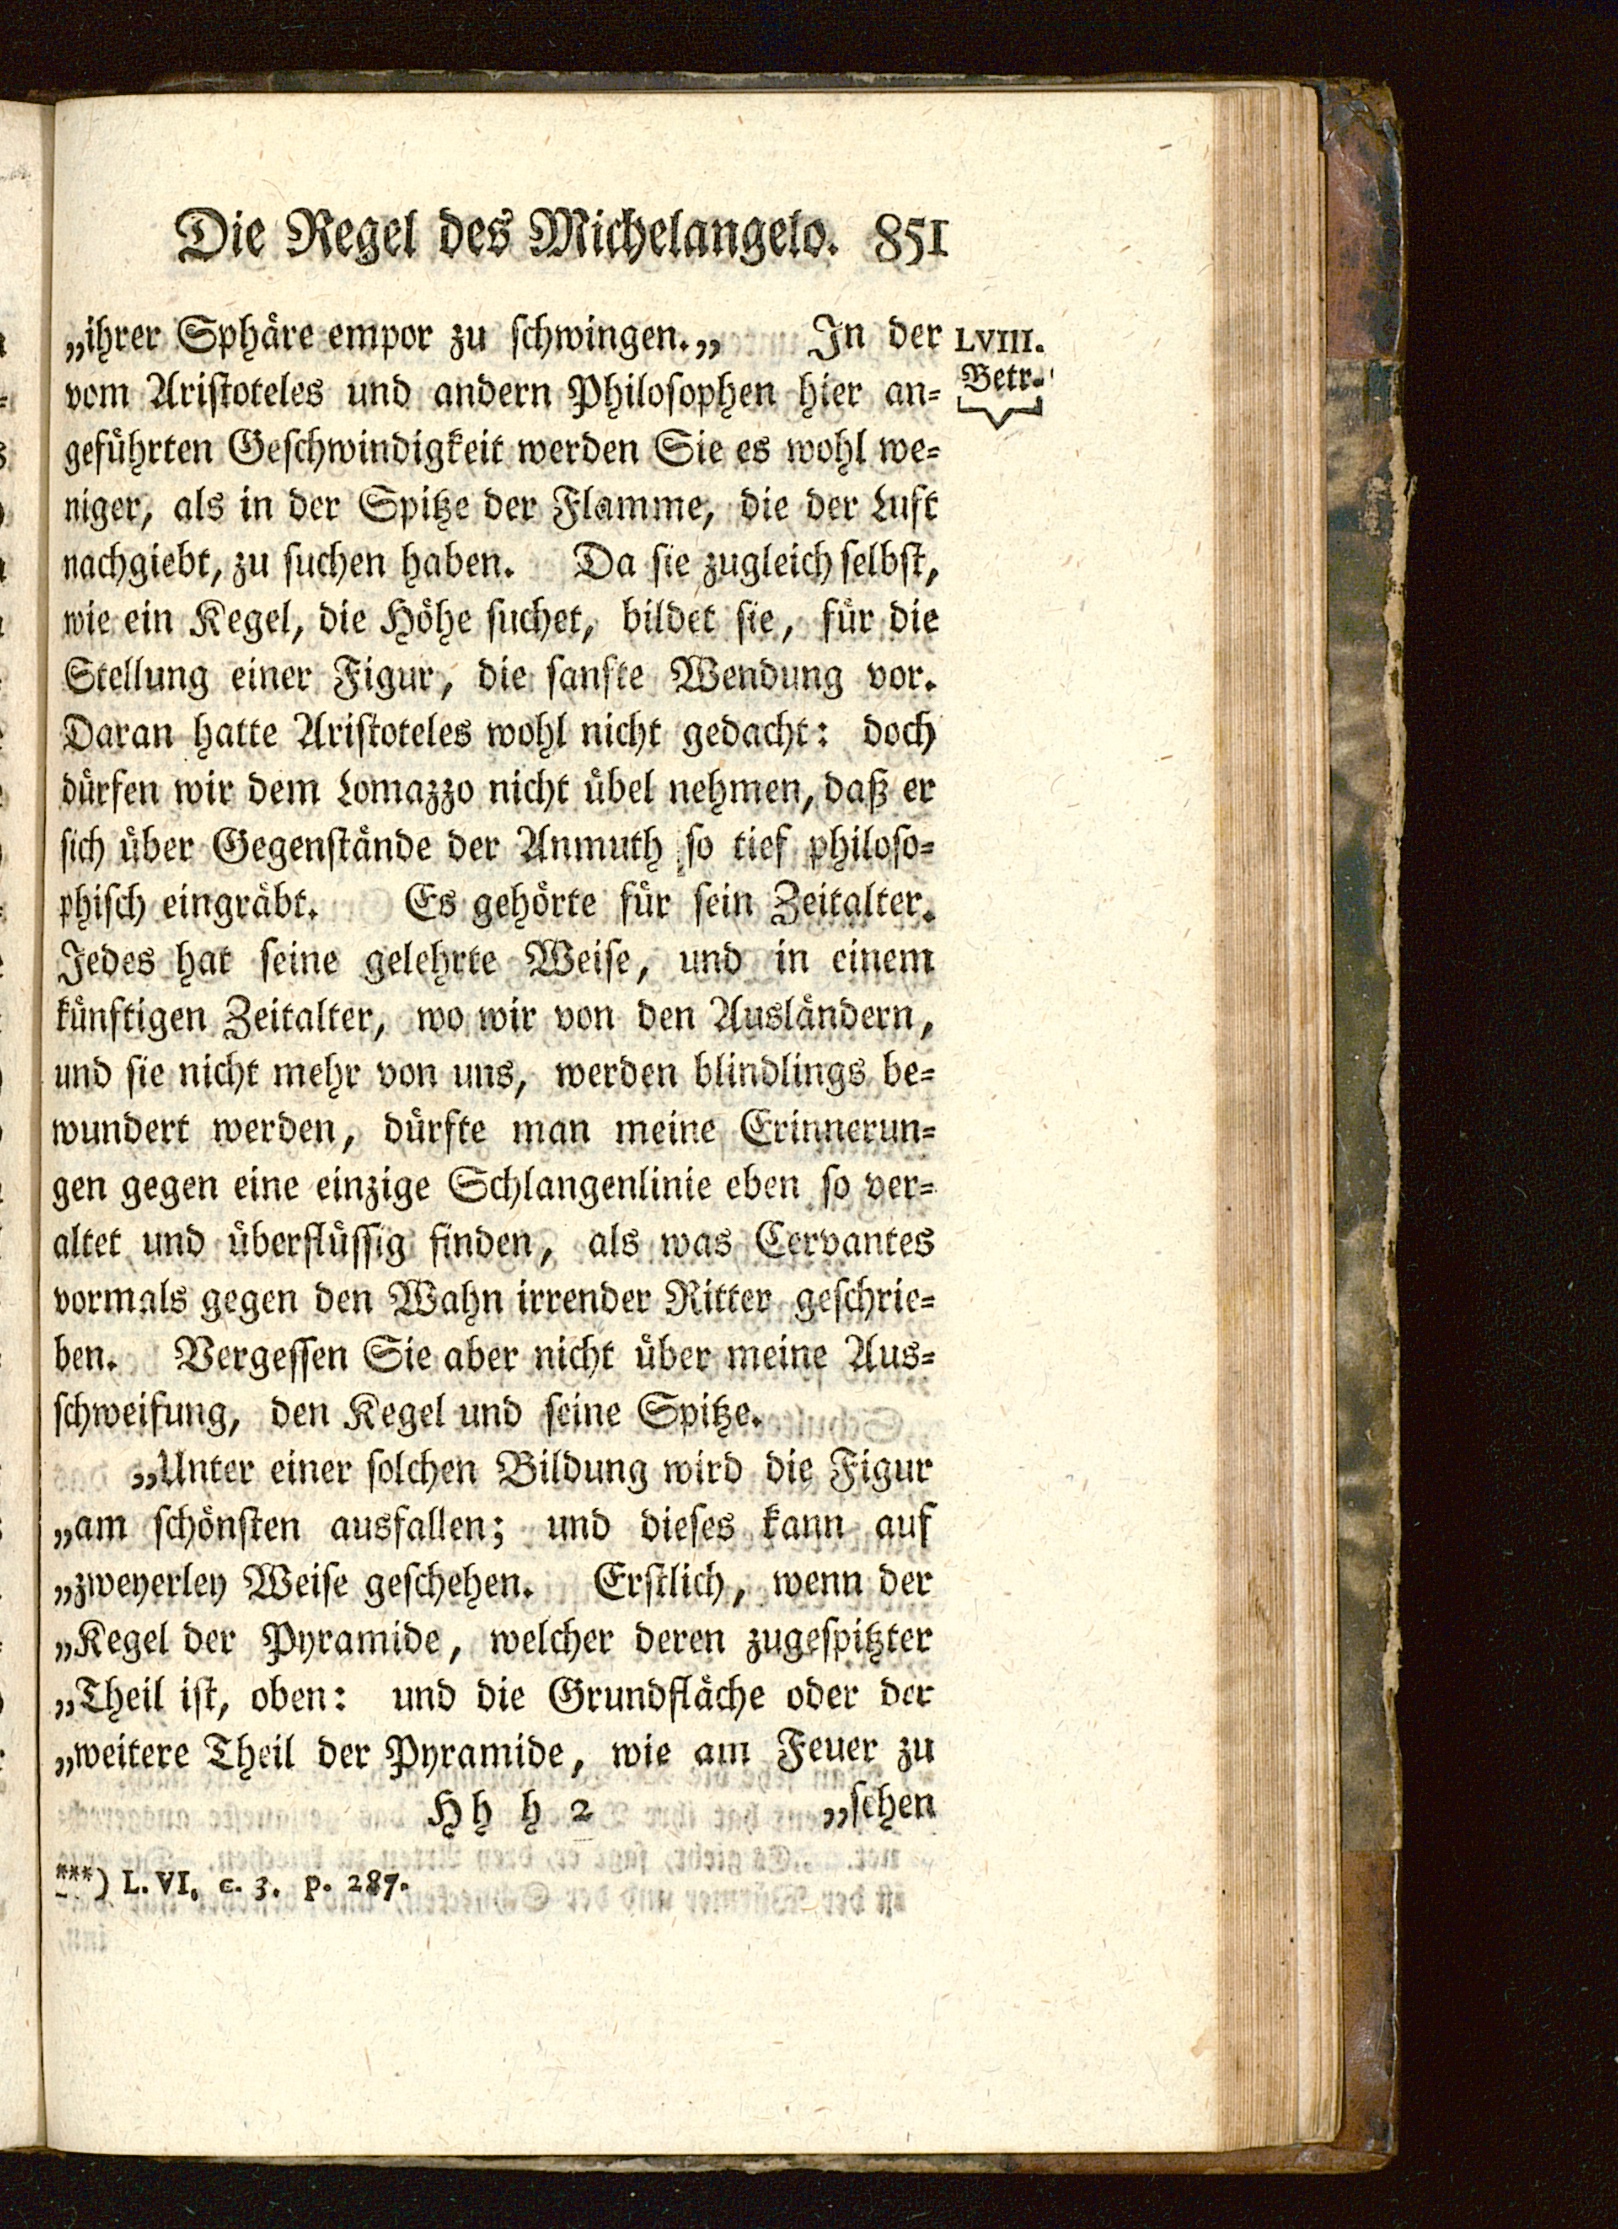 Die Regel des Michelangelo. 851
„ihrer Sphäre empor zu schwingen.„ In der
LVIII.
Betr.
vom Aristoteles und andern Philosophen hier an=
geführten Geschwindigkeit werden Sie es wohl we=
niger, als in der Spitze der Flamme, die der Luft
nachgiebt, zu suchen haben. Da sie zugleich selbst,
wie ein Kegel, die Höhe suchet, bildet sie, für die
Stellung einer Figur, die sanfte Wendung vor.
Daran hatte Aristoteles wohl nicht gedacht: doch
dürfen wir dem Lomazzo nicht übel nehmen, daß er
sich über Gegenstände der Anmuth so tief philoso=
phisch eingräbt. Es gehörte für sein Zeitalter.
Jedes hat seine gelehrte Weise, und in einem
künftigen Zeitalter, wo wir von den Ausländern,
und sie nicht mehr von uns, werden blindlings be=
wundert werden, dürfte man meine Erinnerun=
gen gegen eine einzige Schlangenlinie eben so ver=
altet und überflüssig finden, als was Cervantes
vormals gegen den Wahn irrender Ritter geschrie=
ben. Vergessen Sie aber nicht über meine Aus=
schweifung, den Kegel und seine Spitze.
„Unter einer solchen Bildung wird die Figur
„am schönsten ausfallen; und dieses kann auf
„zweyerley Weise geschehen. Erstlich, wenn der
„Kegel der Pyramide, welcher deren zugespitzter
„Theil ist, oben: und die Grundfläche oder der
„weitere Theil der Pyramide, wie am Feuer zu
Hh h 2 „sehen
***) L. VI. c. 3. p. 287.